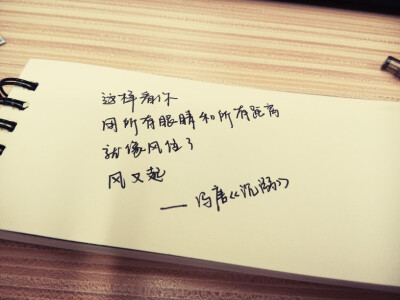 这样看你
用所有眼睛和所有距离
就像风住了
风又起
——冯唐《沉溺》